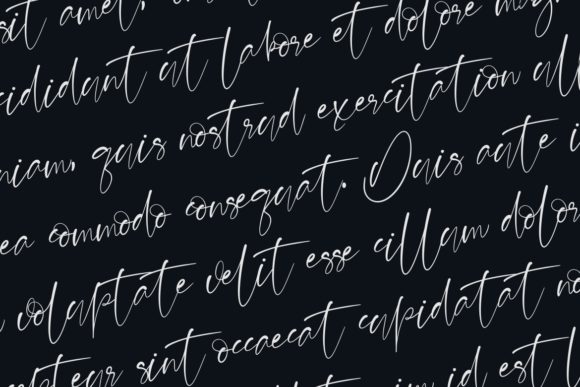 sit amet,
cididunt ut labore et dolore mag
niam, quis nostrud exercitation ull
ea commodo consequat. Duis aute i
voluptate velit esse cillum dolor
epteur sint occaecat cupidatat no
im id est l